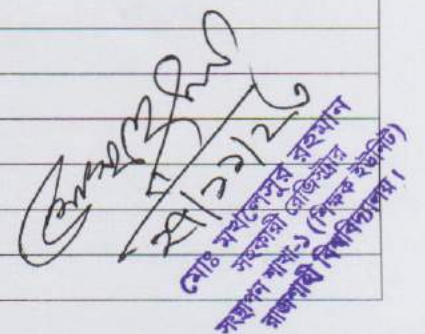 ২৭/১১/২৫
মোঃ মখলেসুর রহমান
সহকারী রেজিস্ট্রার
সংস্থাপন শাখা-১ (শিক্ষক ইউনিট)
রাজশাহী বিশ্ববিদ্যালয়।